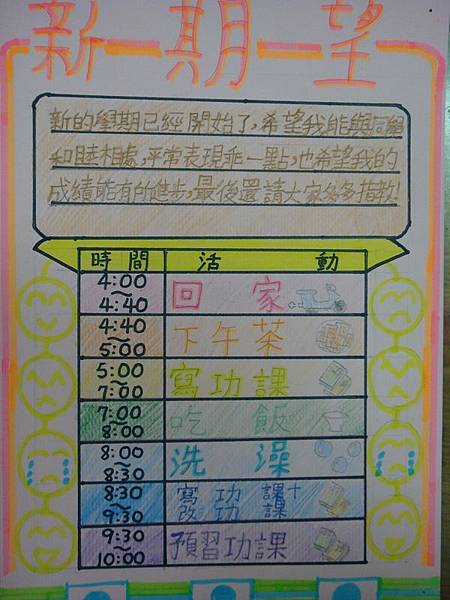 新一期一望
新的學期已經開始了,希望我能與同學
和睦相處,平常表現乖一點,也希望我的
成績能有所進步,最後還請大家多多指教!
時間 活動
4:00~4:40 回家
4:40~5:00 下午茶
5:00~7:00 寫功課
7:00~8:00 吃飯
8:00~8:30 洗澡
8:30~9:30 寫功課+改功課
9:30~10:00 預習功課